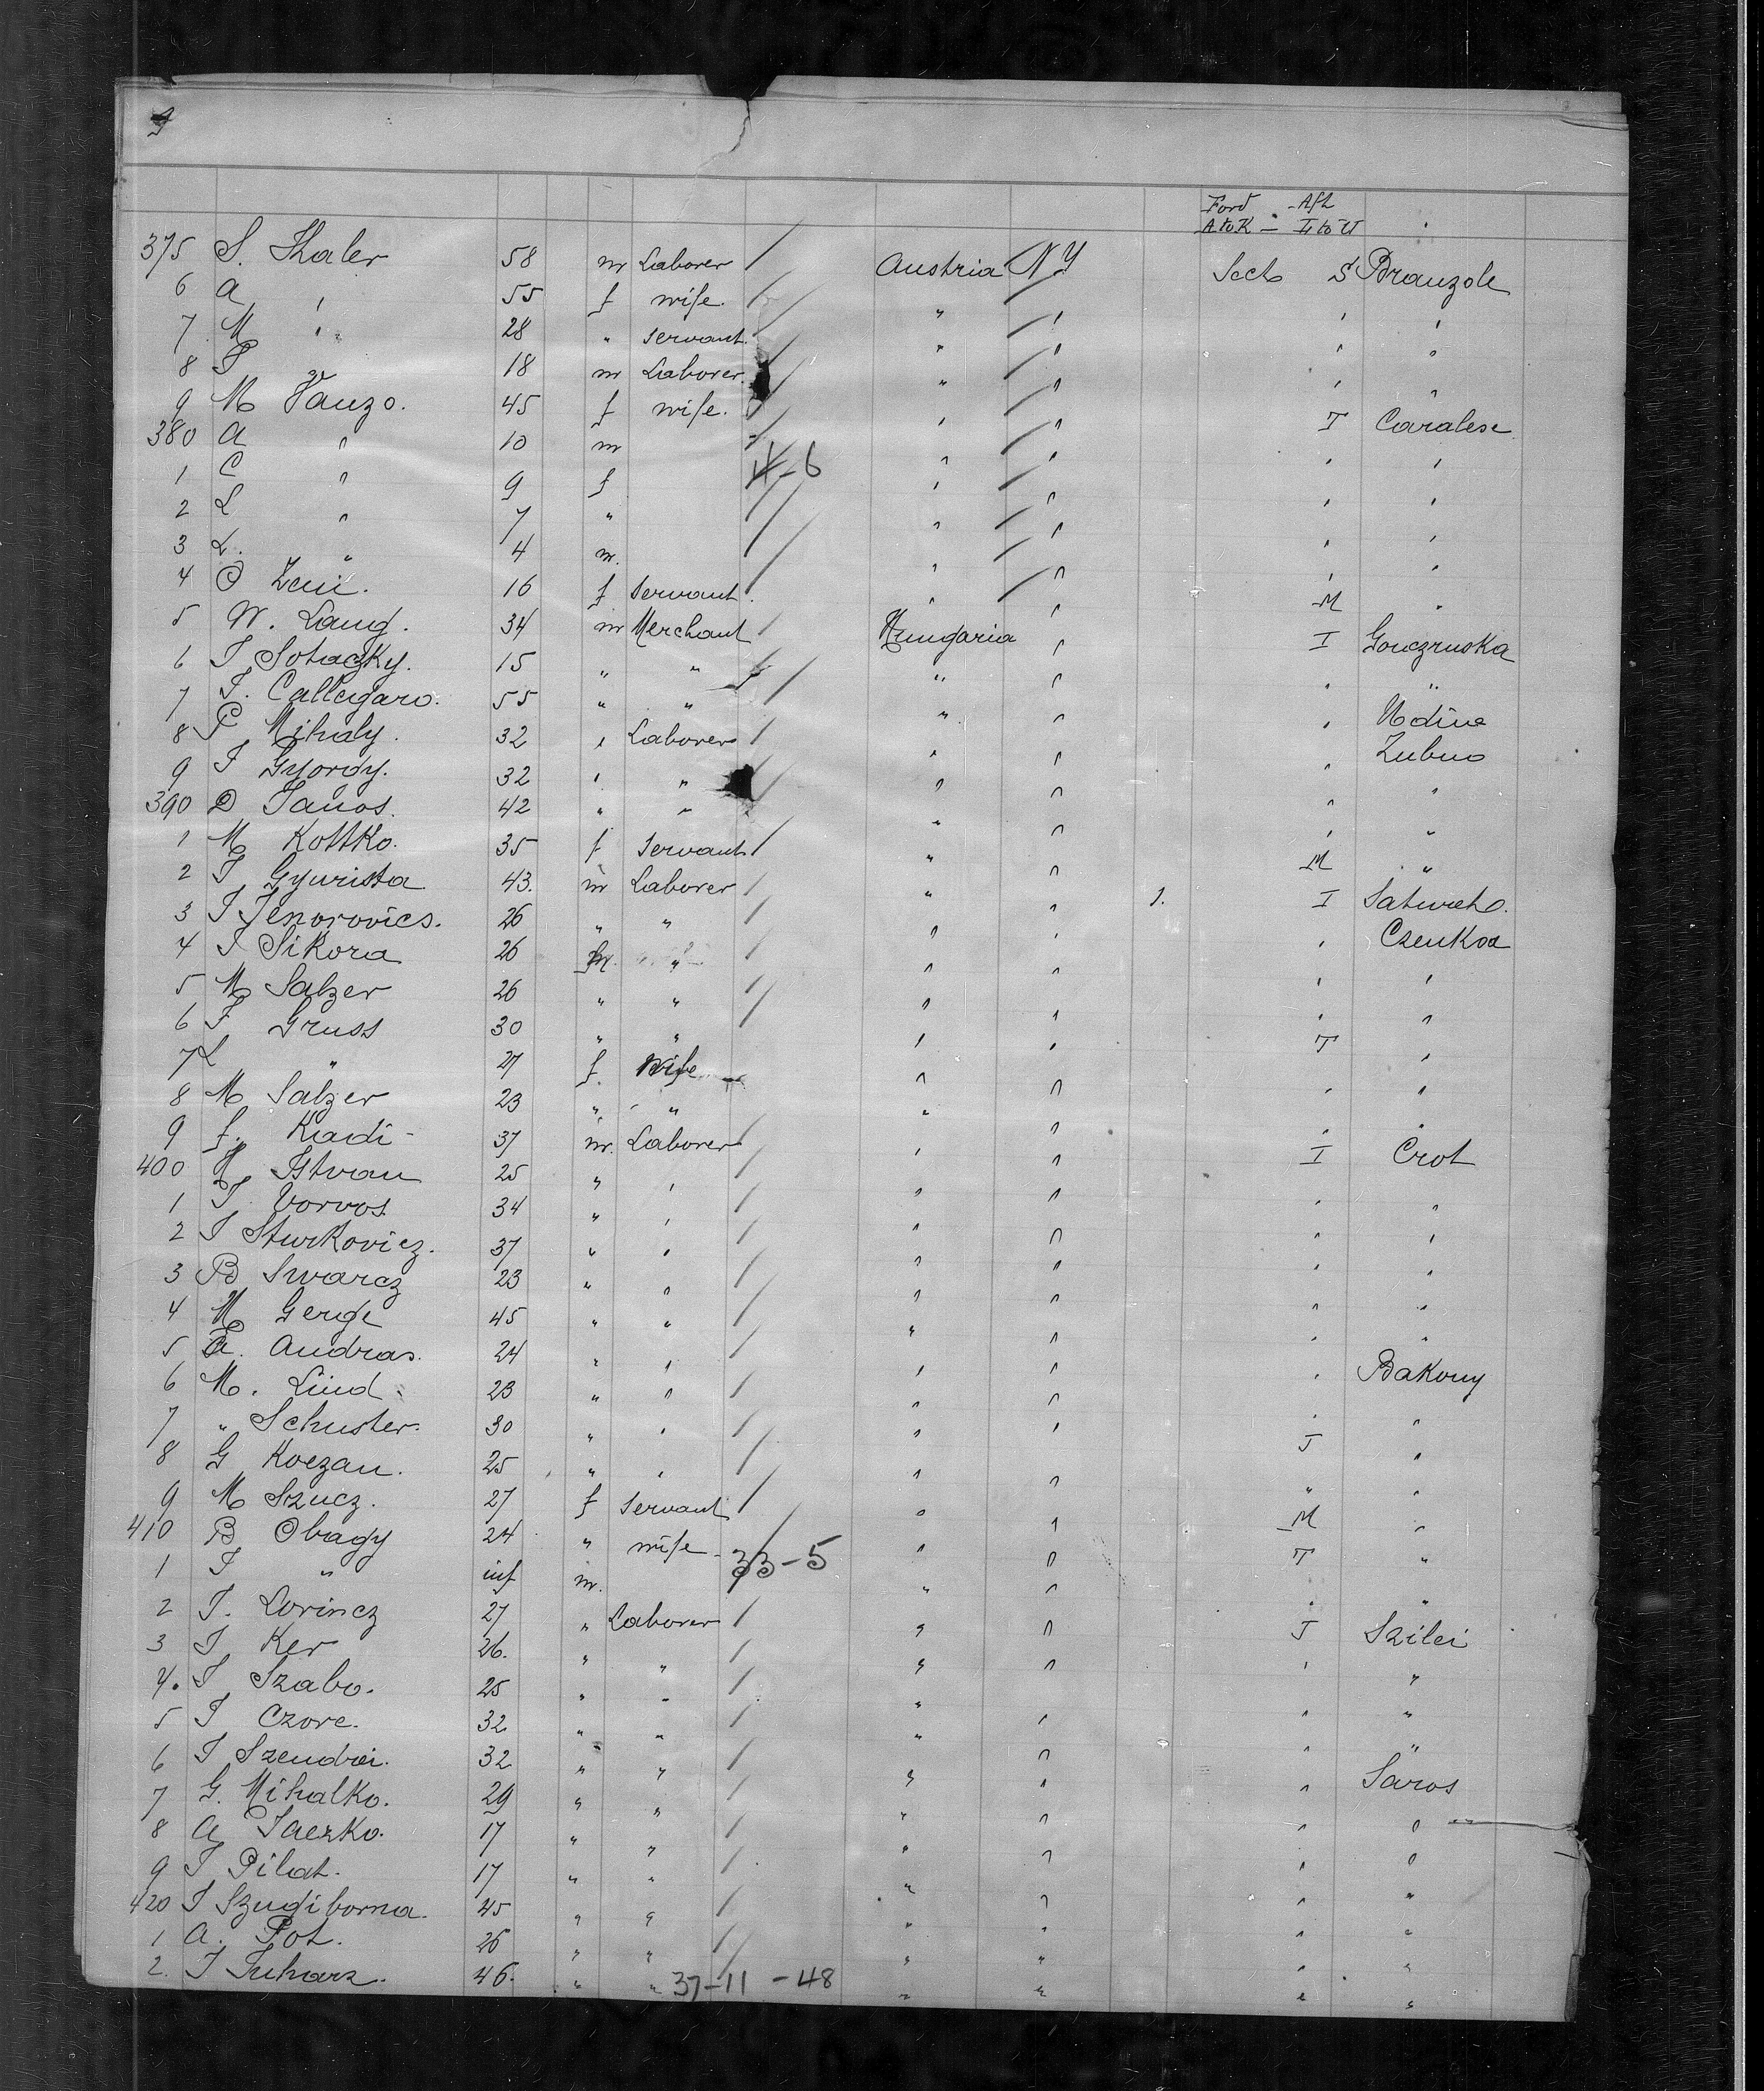 9
Ford - Aft
A to K - L to W
375 S. Thaler 58 m Laborer / Austria NY Sect S Branzole
6 A " 55 f wife / " " " "
7 M " 28 " servant / " " " "
8 P 18 m Laborer / " " " "
9 M Vanzo. 45 f wife. / " " T Caralese
380 A " 10 m / " " " "
1 C " 9 f 4-6 " " " "
2 L " 7 " / " " " "
3 L. " 4 m. / " " " "
4 O Zeni. 16 f servant. / " " M "
5 W. Lang. 34 m Merchant / Hungaria " I Gonczruska
6 I Sotaczky. 15 " " / " " " "
7 I. Callegaro. 55 " " / " " " Udine
8 P Mihaly. 32 " Laborer / " " " Zubno
9 I Gyorgy. 32 " " / " " " "
390 D Janos. 42 " " " " " "
1 M Kottko. 35 f servant / " " M "
2 I Gyurista 43. m Laborer / " " 1. I Satureho.
3 I Jenorovics. 26 " " / " " " Czenkoa
4 I Sikora 26 m. " / " " " "
5 M Salzer 26 " " / " " " "
6 F Gruss 30 " " " " T "
7 L " 27 f. wife " " " "
8 M Salzer 23 " " " " " "
9 f. Kadi - 37 m. Laborer / " " I Crot
400 M Istvan 25 " " / " " " "
1 I. Vorvos 34 " " / " " " "
2 I Sturkovicz. 37 " " / " " " "
3 B Swarcz 23 " " / " " " "
4 M Gerge 45 " " / " " " "
5 A. Andras. 24 " " / " " " Bakony
6 M. Lind 23 " " / " " " "
7 " Schuster. 30 " " / " " J "
8 G Koczan. 25 " " / " " " "
9 M Szucz. 27 f servant / " " M "
410 B Obagy 24 " wife / " " T "
1 I " inf m. 33-5 " " " "
2 I. Lorincz 27 " Laborer / " " J Szilei
3 I Ker 26. " " / " " " "
4. I Szabo. 25 " " / " " " "
5 I Czore. 32 " " / " " " "
6 I Szendrei. 32 " " / " " " Saros
7 G. Mihalko. 29 " " / " " " "
8 A Jaczko. 17 " " / " " " "
9 I Pilat. 17 " " / " " " "
420 I Szugiborna. 45 " " / " " " "
1 A. Pot. 26 " " / " " " "
2. I Juharz. 46. " " 37-11 - 48 " " " "